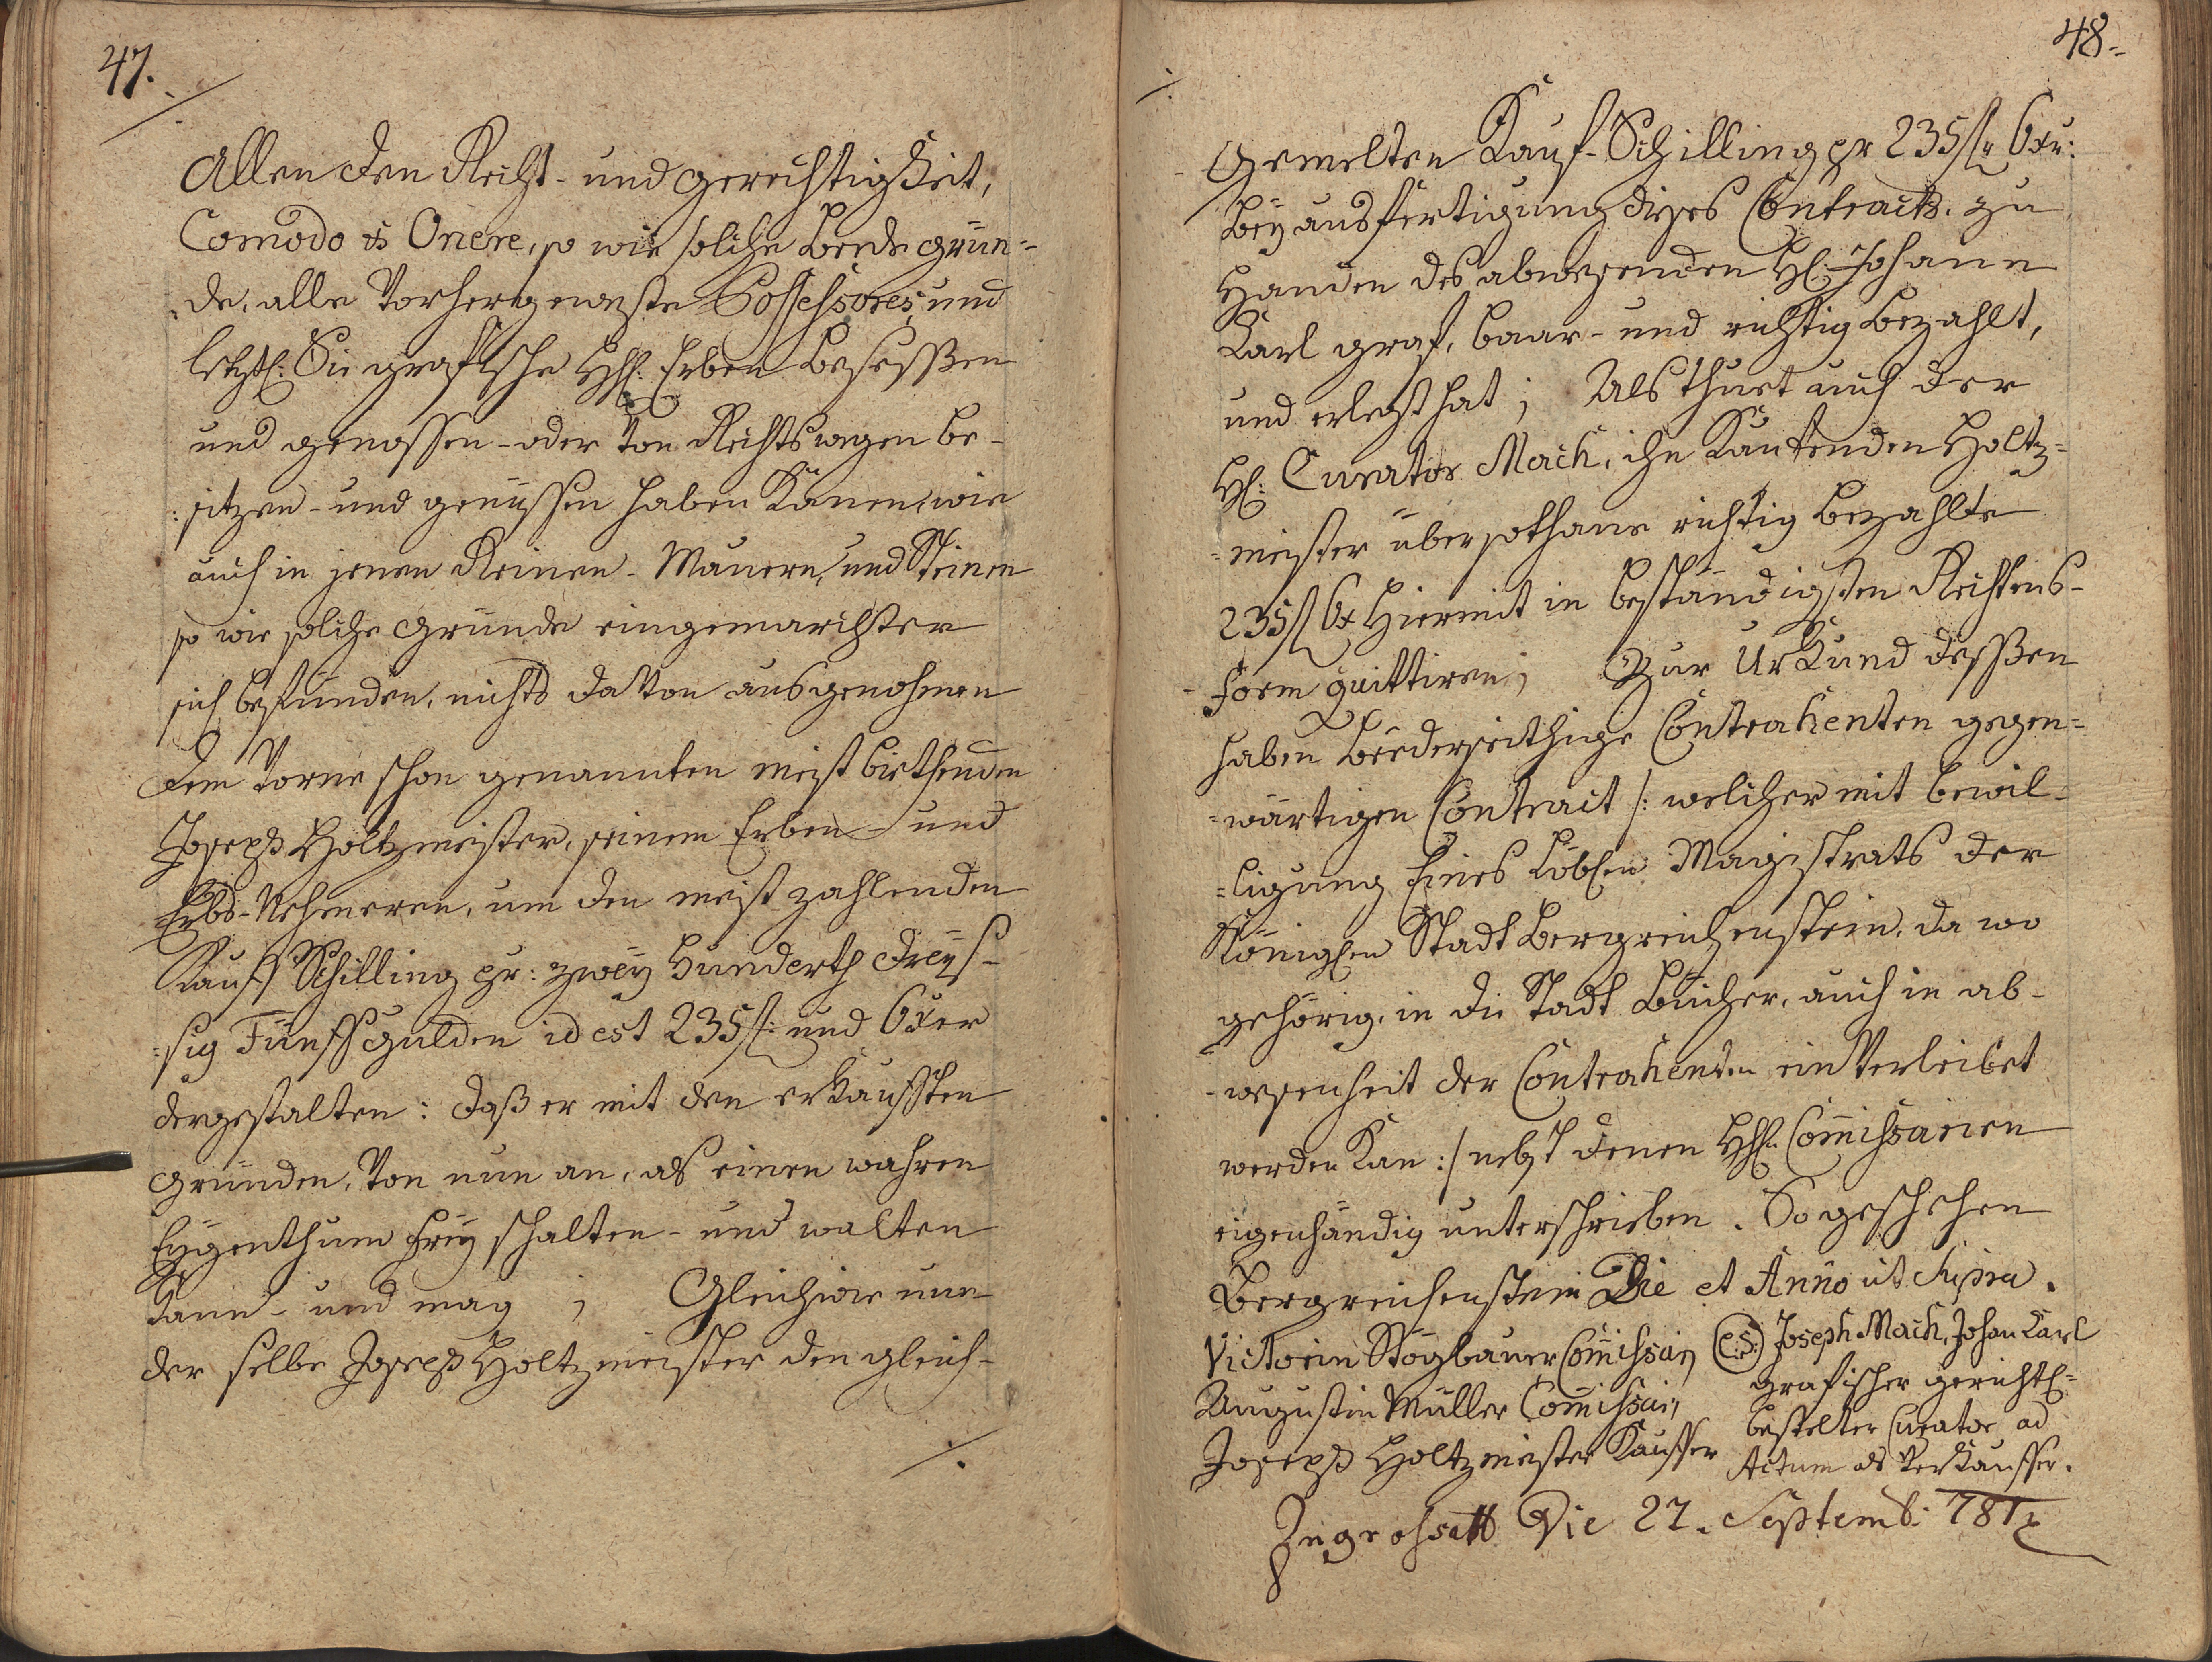 47.
Allen den Recht- und Gerechtigkeit,
Comodo et Onere, so wie solche beede grün-
de, alle Vorhergeweste Possessores, und
letztl: Die grafische HhE: Erben besessßen
und genossen- oder Von Rechtswegen be-
:sitzen- und genüssen haben Können, wie
auch in jenen Reinen- Mauern, und Steinen
so wie solche Gründe eingemarchter
sich befünden, nichts daVon ausgenohmen
dem Vorne schon genannten meist biethenden
Joseph Holtzmeister, seinem Erben- und
Erbs-Nehmeren, um den meist zahlenden
Kauff Schilling pr: zweÿ Hunderth dreÿs-
:sig Fünff Gulden id est 235 f: und 6 xer
dergestalten: daß er mit den erkaufften
Gründen, Von nun an, als einen wahren
Eÿgenthum freÿ schalten- und walten
Kann- und mag; Gleichwie nun
der selbe Joseph Holtzmeister den gleich-
./.
48.
./.
Gemelten Kauf-Schilling pr 235 f: 6 xr:
beÿ ausfertigung dieses Contracts, zu
Handen des abwesenden H: Johann
Karl Graf, baar- und richtig bezahlt,
und erlegt hat; Als thuet auch der
H: Curator Mach, ihn Kaufenden Holtz-
:meister über sothane richtig bezahlte
235 f 6 x Hiermit in beständigsten Rechtens-
-form quittiren; Zur Urkund dessßen
haben beederseithige Contrahenten gegen-
:wärtigen Contract /: welcher mit bewil-
:ligung Eines Löblen Magistrats der
Königlen Stadt Bergreichenstein, da wo
gehörig, in die Stadt Bücher, auch in ab-
-wesenheit der Contrahenten einVerleibet
werden Kan :/ nebst denen HH: Commissarien
eigenhändig unterschrieben. So geschehen
Bergreichenstein Die et Anno ut Supra.
Victorin Stögbauer Commissar (L:S:) Joseph Mach, Johan Karl
Augustin Müller Commissar grafischer gerichtl=
Joseph Holtzmeister Kauffer bestelter Curator ad
Actum als Verkauffer.
Ingrossatt Die 27. Septemb: 781